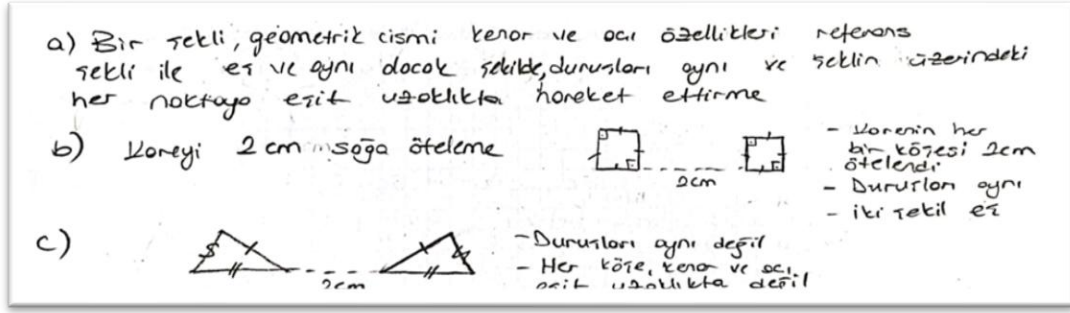 a) Bir şekli, geometrik cismi kenar ve açı özellikleri referans
şekli ile eş ve aynı olacak şekilde, duruşları aynı ve şeklin üzerindeki
her noktayo eşit uzaklıkta hareket ettirme
b) Kareyi 2 cm sağa öteleme
2cm
- Karenin her
bir köşesi 2cm
ötelendi
- Duruşları aynı
- iki şekil eş
c)
2cm
- Duruşları aynı değil
- Her köşe, kenar ve açı
eşit uzaklıkta değil